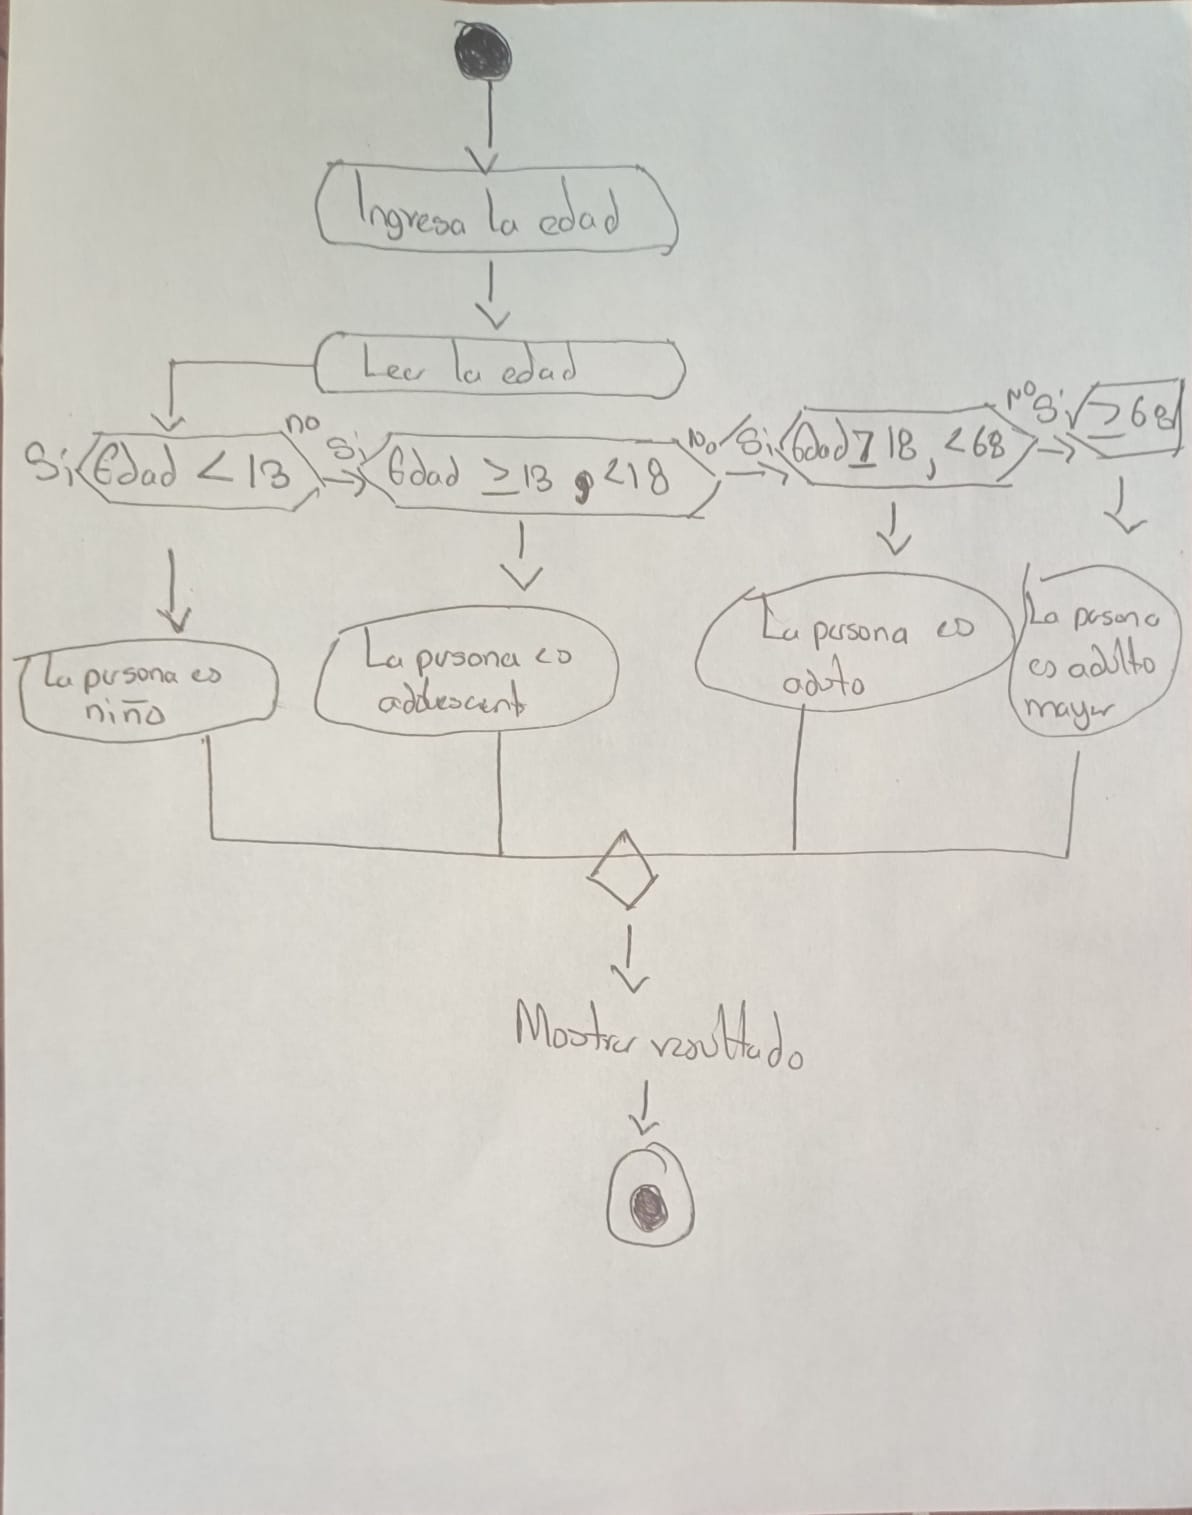 Ingresa la edad
Leer la edad
Si Edad < 13 no
Si Edad ≥ 13 , < 18 No
Si Edad ≥ 18 , < 68 No
Si ≥ 68
La persona es
niño
La persona es
adolescent
La persona es
adulto
La persona
es adulto
mayor
Mostrar resultado